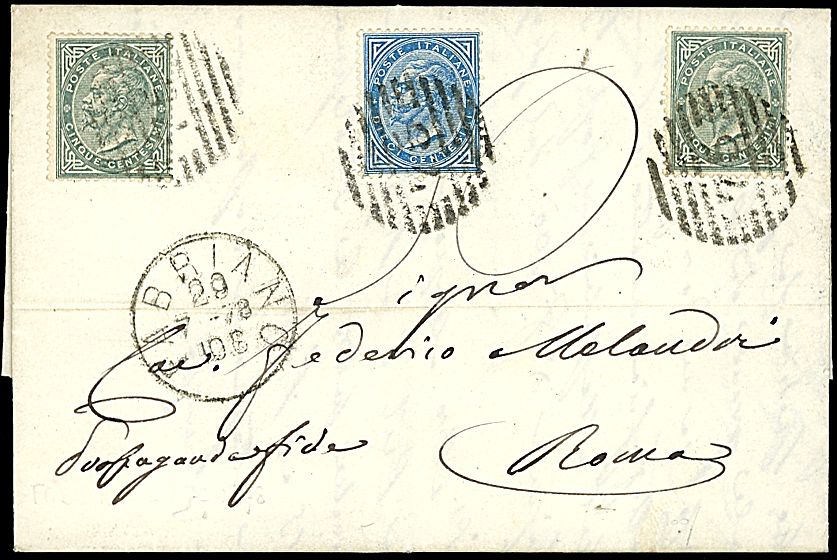 POSTE ITALIANE
CINQUE CENTESIMI
POSTE ITALIANE
DIECI CENTESIMI
POSTE ITALIANE
CINQUE CENTESIMI
FABRIANO
29
78
10S
Signor
Cav. Federico Melandri
Propaganda fide
Roma